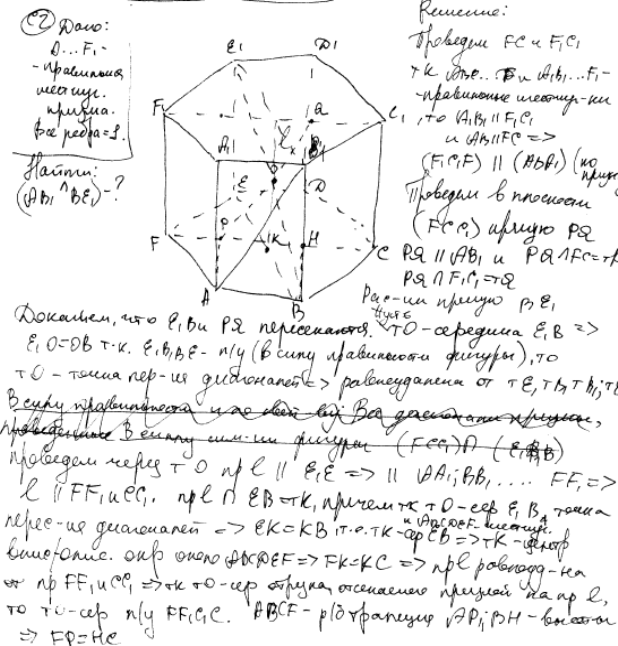 С2 Дано:
A...F₁ -
- правильная
шестиуг.
призма.
Все ребра = 1.
Найти:
(AB₁ ^ BE₁) - ?
E₁ D₁
F₁ A₁ B₁ Q C₁
O
E D
F P K H C
A B
Решение:
Проведем FC и F₁C₁
тк ABC... и A₁B₁...F₁ -
- правильные шестиуг-ки
, то A₁B₁ || F₁C₁
и AB || FC =>
(F₁C₁F) || (ABA₁) (по
Проведем в плоскости
(FCC₁) прямую PQ
PQ || AB₁ и PQ ∩ FC = тP
PQ ∩ F₁C₁ = тQ
Рас-им прямую BE₁
Докажем, что E₁B и PQ пересекаются. Пусть тO - середина E₁B =>
E₁O = OB т.к. E₁B₁BE - п/у (в силу правильности фигуры), то
тO - точка пер-ия диагоналей => равноудалена от тE, тB, тB₁, тE₁
В силу правильности
проведенные В силу сим-ии фигуры (FCC₁) ∩
проведем через тO пр l || E₁E => || AA₁; BB₁ .... FF₁ =>
l || FF₁ и CC₁. пр l ∩ EB = тK, причем тк тO - сер E₁B, точка
перес-ия диагоналей => EK = KB т.о. тK - сер EB и ABCDEF - шестиуг. => тK - центр
описан. окр около ABCDEF => FK = KC => пр l равноуд-на
от пр FF₁ и CC₁ => тк тO - сер отрезка, отсекаемого призмой на пр l,
то тO - сер п/у FF₁C₁C. ABCF - р/б трапеция AP; BH - высоты
=> FP = HC